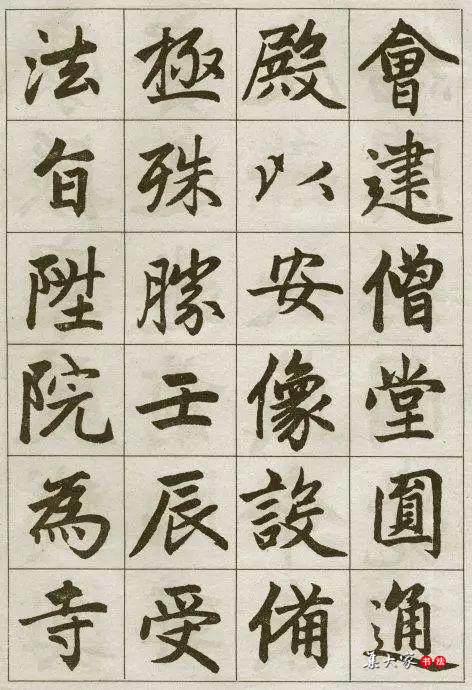 會建僧堂圓通
殿以安像設備
極殊勝壬辰受
法旨陞院為寺
集大家书法